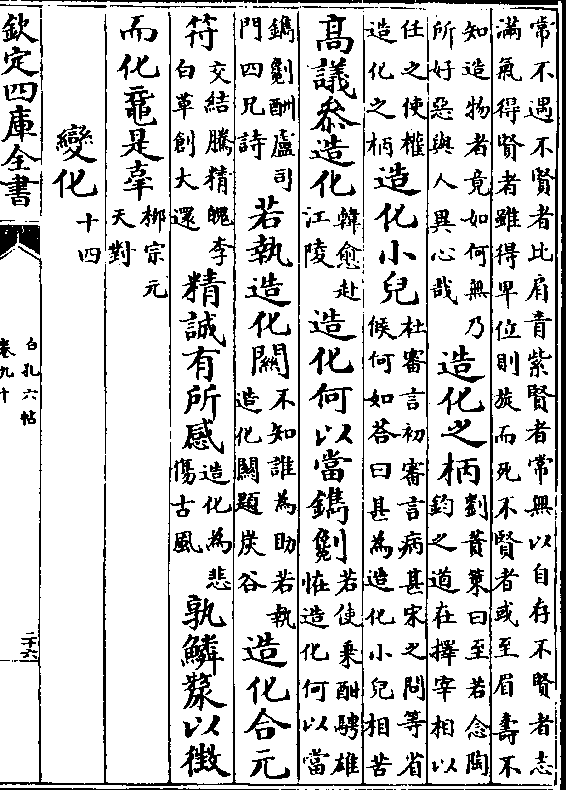 常不遇不賢者比肩青紫賢者常無以自存不賢者志
滿氣得賢者雖得卑位則旋而死不賢者或至眉壽不
知造物者竟如何無乃所好惡與人異心哉造化之柄劉蕡策曰至若念陶鈞之道在擇宰相以
任之使權造化之柄造化小兒杜審言初審言病甚宋之問等省候何如荅曰甚為造化小兒相苦
髙議參造化韓愈赴江陵造化何以當鐫劖若使乗酣騁雄怪造化何以當
鐫劖酬盧司門四兄詩若執造化闗不知誰為助若執造化闗題炭谷造化合元
符交結騰精魄李白草創大還精誠有所感造化為悲傷古風孰鱗漦以徵
而化黿是辜栁宗元天對
變化十四
欽定四庫全書
白孔六帖
卷九十
二十六